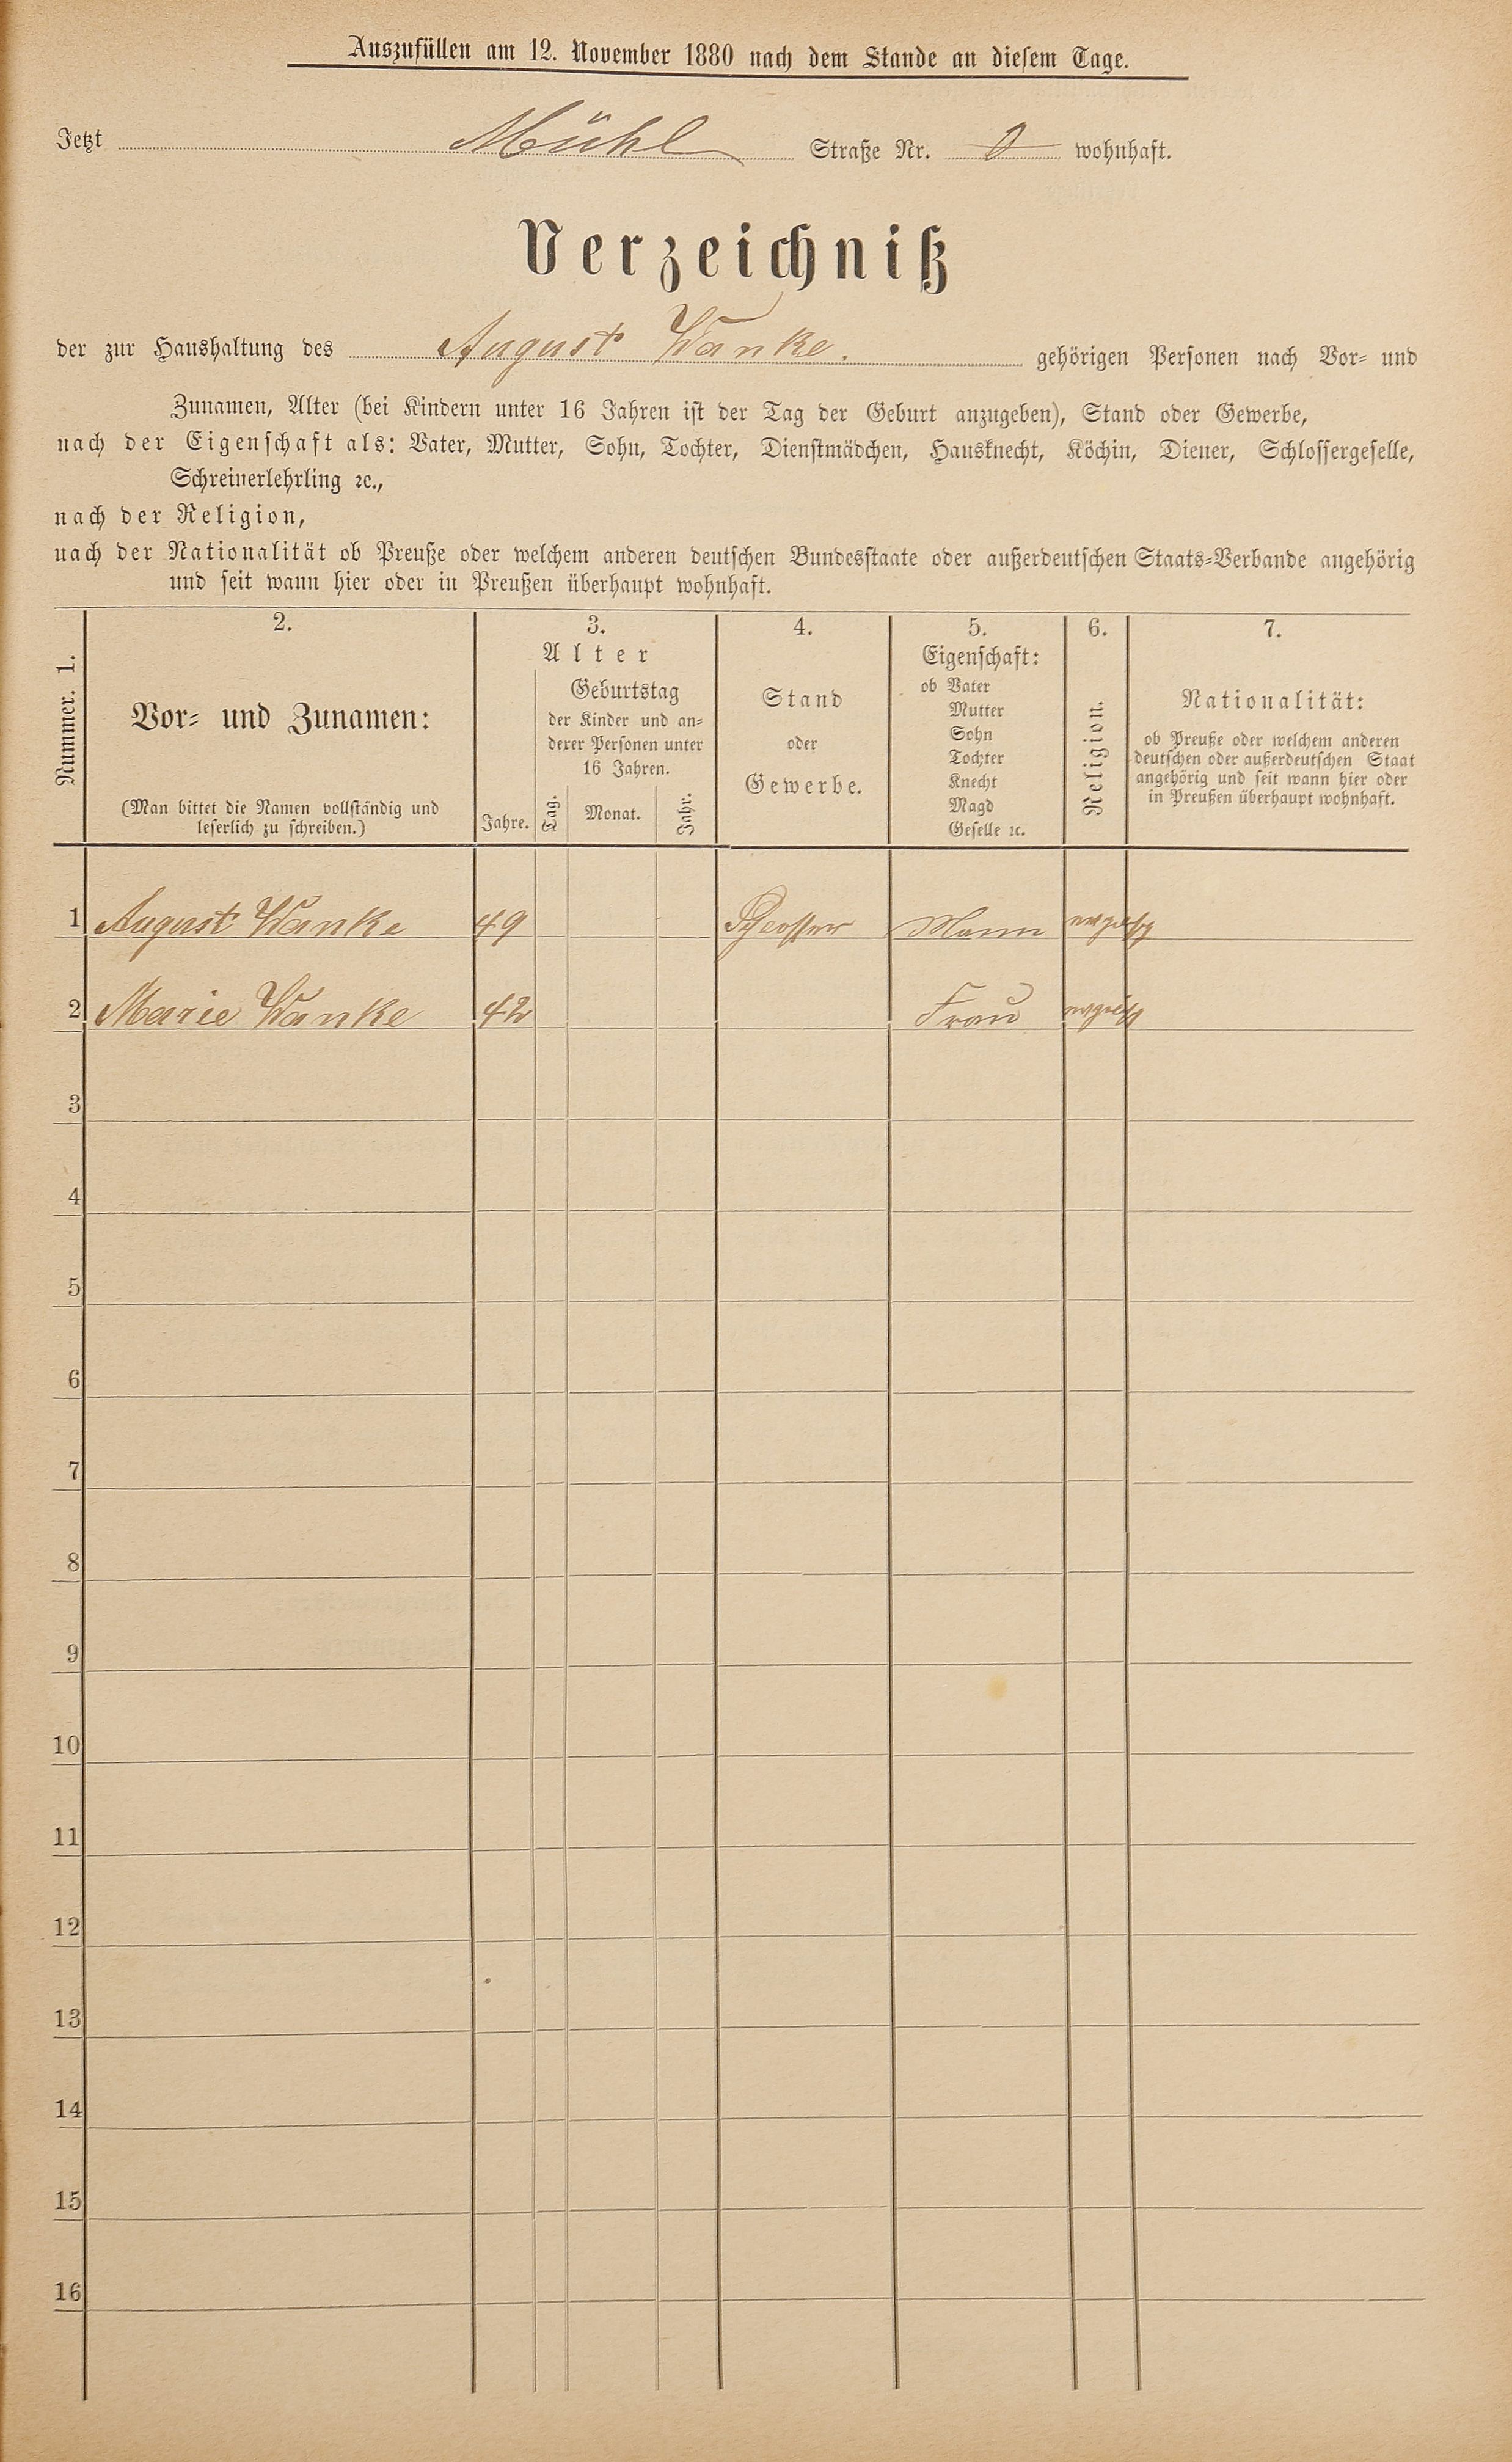 Auszufüllen am 12. November 1880 nach dem Stande an diesem Tage.
Jetzt Mühl Straße Nr. wohnhaft.
Verzeichniß
der zur Haushaltung des August Wanke. gehörigen Personen nach Vor- und
Zunamen, Alter (bei Kindern unter 16 Jahren ist der Tag der Geburt anzugeben), Stand oder Gewerbe,
nach der Eigenschaft als: Vater, Mutter, Sohn, Tochter, Dienstmädchen, Hausknecht, Köchin, Diener, Schlossergeselle,
Schreinerlehrling ꝛc.,
nach der Religion,
nach der Nationalität ob Preuße oder welchem anderen deutschen Bundesstaate oder außerdeutschen Staats-Verbande angehörig
und seit wann hier oder in Preußen überhaupt wohnhaft.
Nummer. 1.
2.
Vor- und Zunamen:
(Man bittet die Namen vollständig und
leserlich zu schreiben.)
3.
Alter
Jahre.
Geburtstag
der Kinder und an-
derer Personen unter
16 Jahren.
Tag. Monat. Jahr.
4.
Stand
oder
Gewerbe.
5.
Eigenschaft:
ob Vater
Mutter
Sohn
Tochter
Knecht
Magd
Geselle ꝛc.
6.
Religion.
7.
Nationalität:
ob Preuße oder welchem anderen
deutschen oder außerdeutschen Staat
angehörig und seit wann hier oder
in Preußen überhaupt wohnhaft.
1 August Wanke 49 Schlosser Mann
2 Marie Wanke 42 Frau
3
4
5
6
7
8
9
10
11
12
13
14
15
16